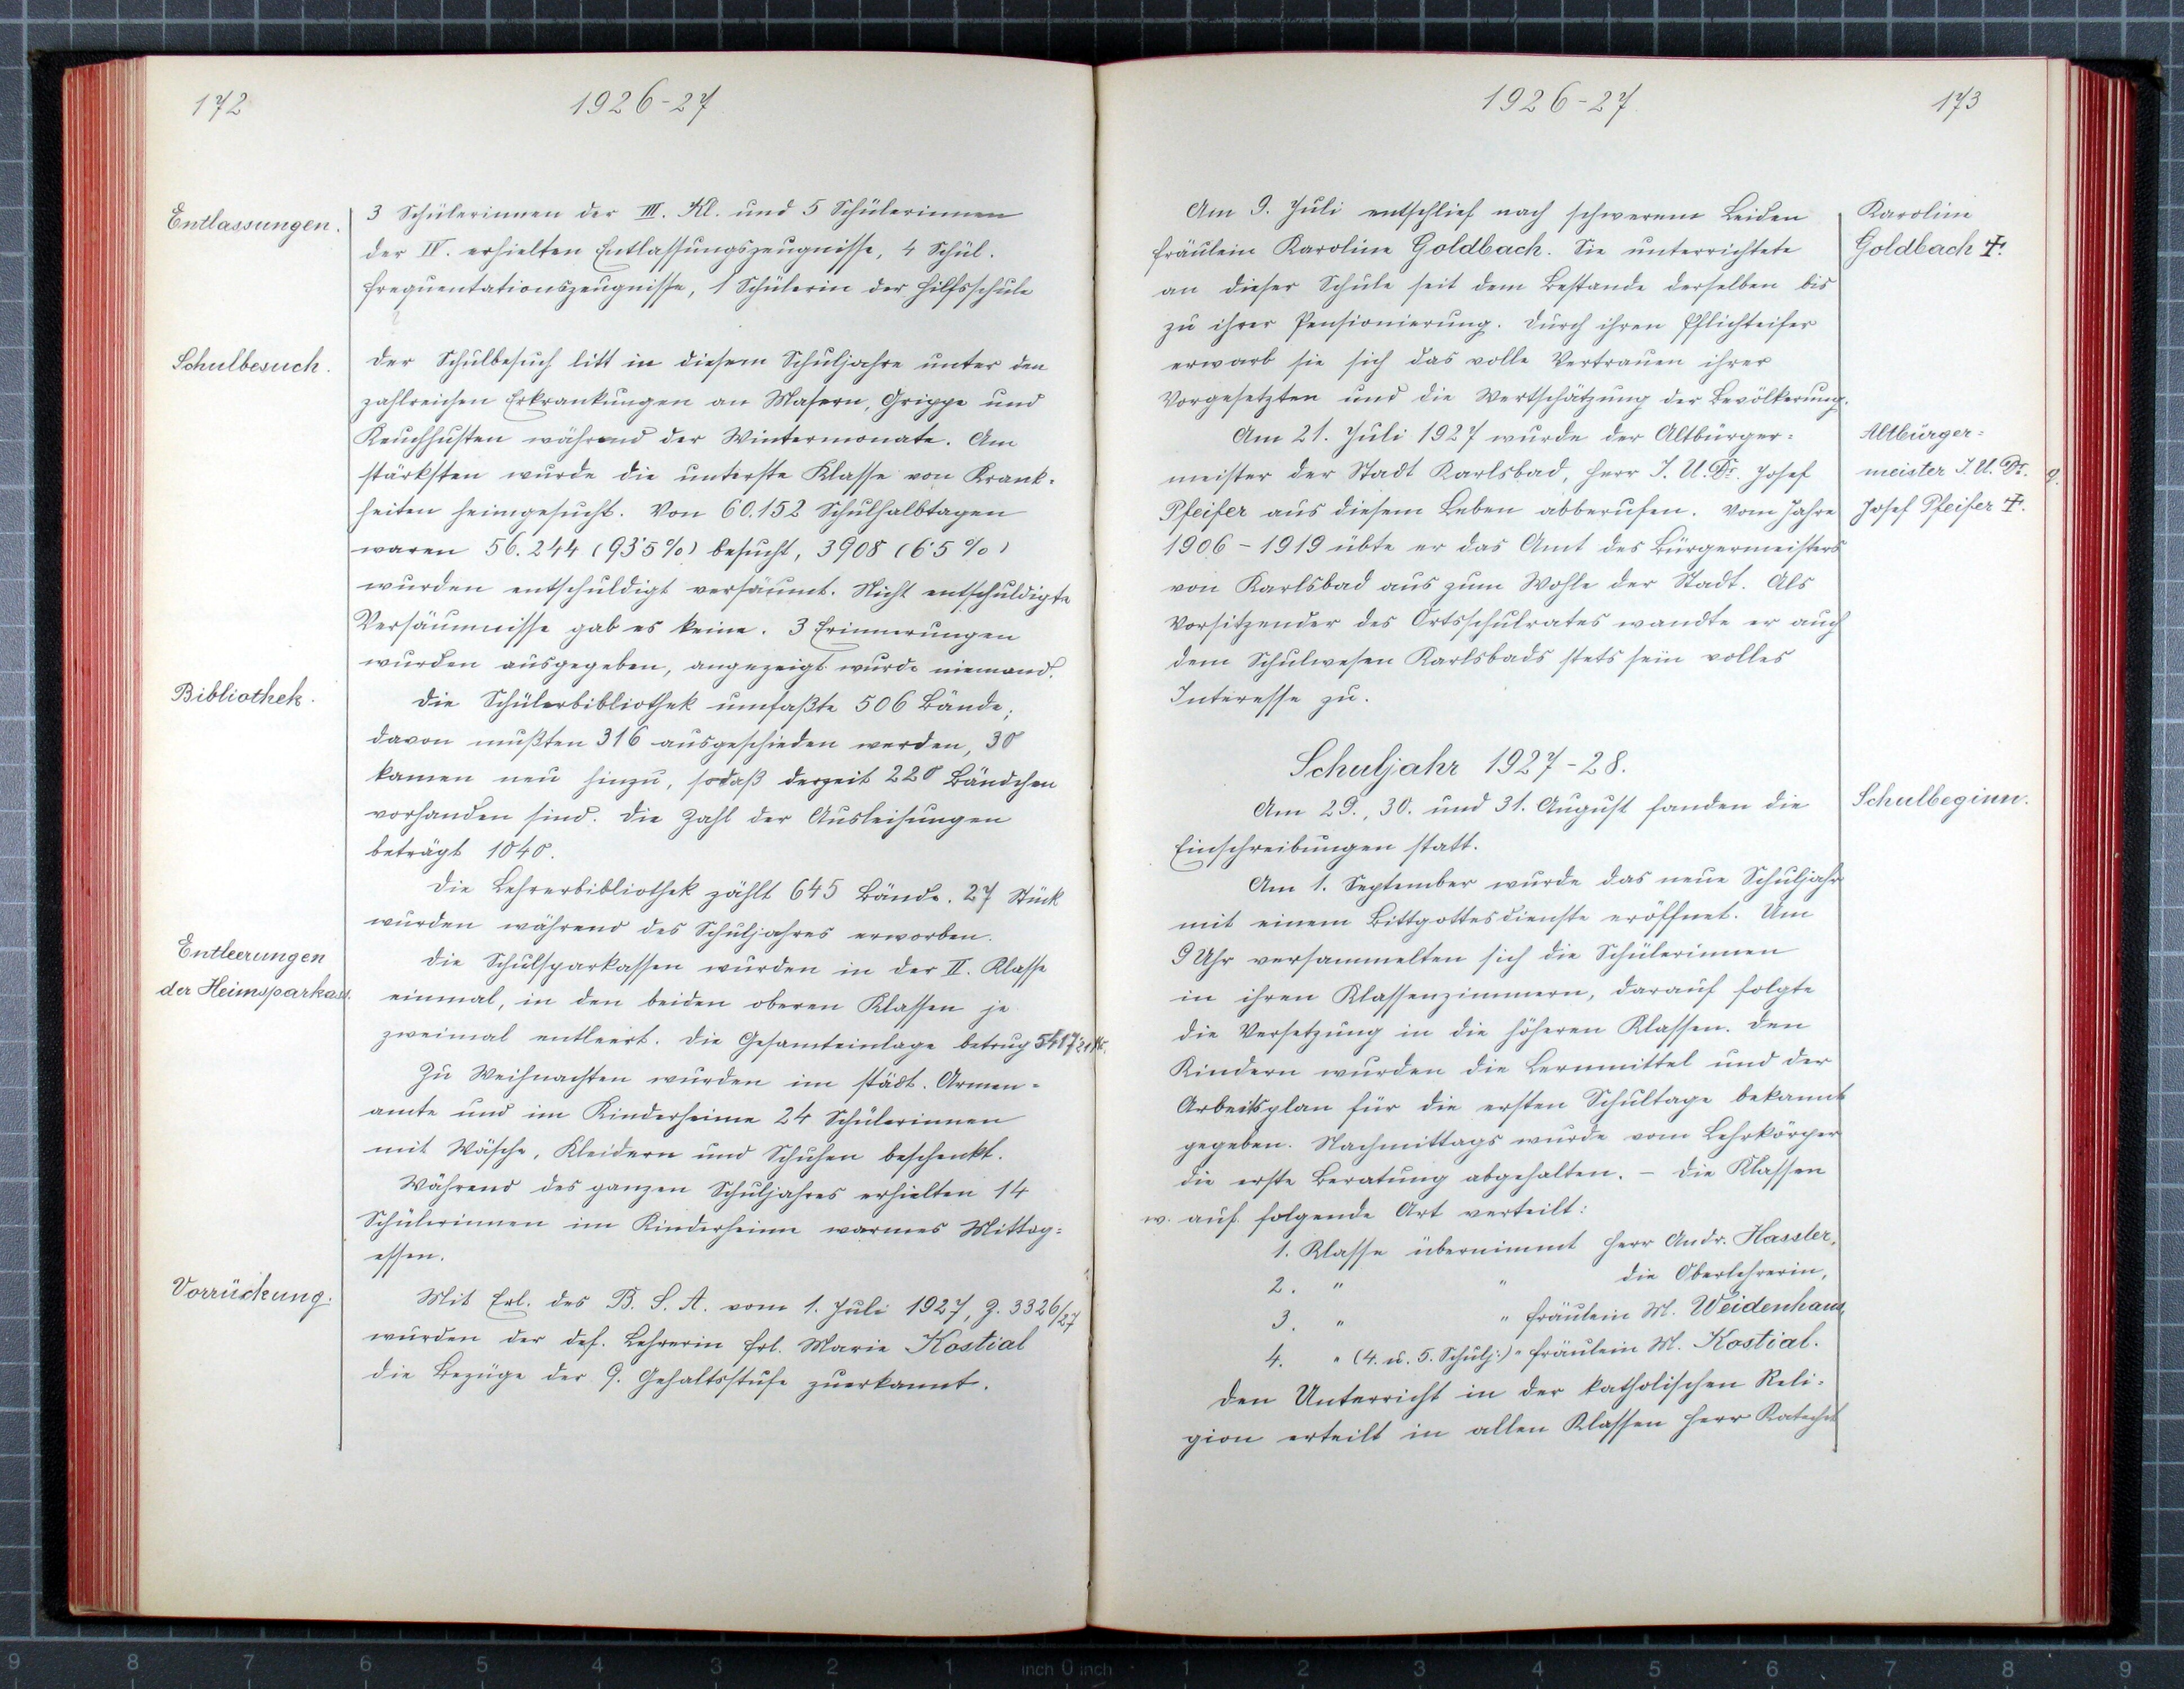 172
1926-27
Entlassungen.
3 Schülerinnen der III. Kl. und 5 Schülerinnen
der IV. erhielten Entlassungszeugnisse, 4 Schül.
Frequentationszeugnisse, 1 Schülerin der Hilfsschule
Schulbesuch.
Der Schulbesuch litt in diesem Schuljahre unter den
zahlreichen Erkrankungen an Masern, Grippe und
Keuchhusten während der Wintermonate. Am
stärksten wurde die unterste Klasse von Krank-
heiten heimgesucht. Von 60.152 Schulhalbtagen
waren 56.244 (93·5%) besucht, 3908 (6·5%)
wurden entschuldigt versäumt. Nicht entschuldigte
Versäumnisse gab es keine. 3 Erinnerungen
wurden ausgegeben, angezeigt wurde niemand.
Bibliothek.
Die Schülerbibliothek umfaßte 506 Bände;
davon mußten 316 ausgeschieden werden, 30
kamen neu hinzu, sodaß derzeit 220 Bändchen
vorhanden sind. Die Zahl der Ausleihungen
beträgt 1040.
Die Lehrerbibliothek zählt 645 Bände. 27 Stück
wurden während des Schuljahres erworben.
Entleerungen
der Heimsparkass.
Die Schulsparkassen wurden in der II. Klasse
einmal, in den beiden oberen Klassen je
zweimal entleert. Die Gesamteinlage betrug
Zu Weihnachten wurden im städt. Armen-
amte und im Kinderheime 24 Schülerinnen
mit Wäsche, Kleidern und Schuhen beschenkt.
Während des ganzen Schuljahres erhielten 14
Schülerinnen im Kinderheime warmes Mittag-
essen.
Vorrückung.
Mit Erl. des B. S. A. vom 1. Juli 1927, Z. 3326/27
wurden der def. Lehrerin Frl. Marie Kostial
die Bezüge der 9. Gehaltsstufe zuerkannt.
1926-27
173
Am 9. Juli entschlief nach schwerem Leiden
Fräulein Karoline Goldbach. Sie unterrichtete
an dieser Schule seit dem Bestande derselben bis
zu ihrer Pensionierung. Durch ihren Pflichteifer
erwarb sie sich das volle Vertrauen ihrer
Vorgesetzten und die Wertschätzung der Bevölkerung.
Karoline
Goldbach ‡.
Am 21. Juli 1927 wurde der Altbürger-
meister der Stadt Karlsbad, Herr J. U. Dr. Josef
Pfeifer aus diesem Leben abberufen. Vom Jahre
1906-1919 übte er das Amt des Bürgermeisters
von Karlsbad aus zum Wohle der Stadt. Als
Vorsitzender des Ortsschulrates wandte er auch
dem Schulwesen Karlsbads stets sein volles
Interesse zu.
Altbürger-
meister J. U. Dr.
Josef Pfeifer ‡.
Schuljahr 1927-28.
Am 29., 30. und 31. August fanden die
Einschreibungen statt.
Schulbeginn.
Am 1. September wurde das neue Schuljahr
mit einem Bittgottesdienste eröffnet. Um
9 Uhr versammelten sich die Schülerinnen
in ihren Klassenzimmern, darauf folgte
die Versetzung in die höheren Klassen. Den
Kindern wurden die Lernmittel und der
Arbeitsplan für die ersten Schultage bekannt
gegeben. Nachmittags wurde vom Lehrkörper
die erste Beratung abgehalten. – Die Klassen
w. auf folgende Art verteilt:
1. Klasse übernimmt Herr Andr. Hassler,
2. " " die Oberlehrerin,
3. " " Fräulein M. Weidenhaus,
4. " (4. u. 5. Schulj.) " Fräulein M. Kostial.
Den Unterricht in der katholischen Reli-
gion erteilt in allen Klassen Herr Katechet